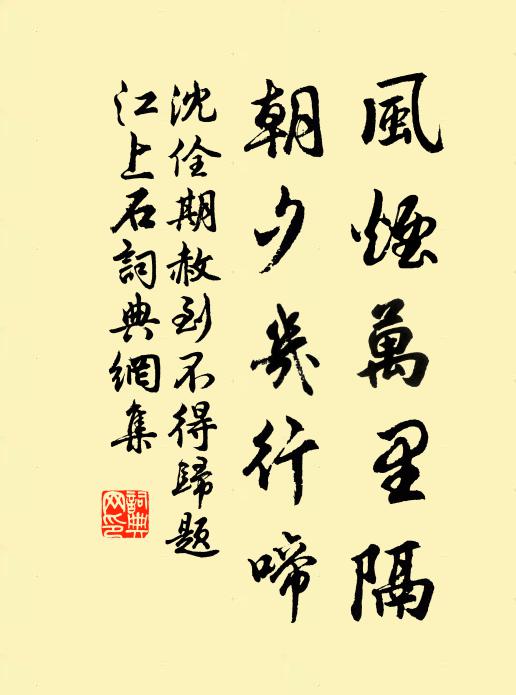 風煙萬里隔
朝夕幾行啼
沈佺期赦到不得歸題
江上石詞典網集
詞典
网印